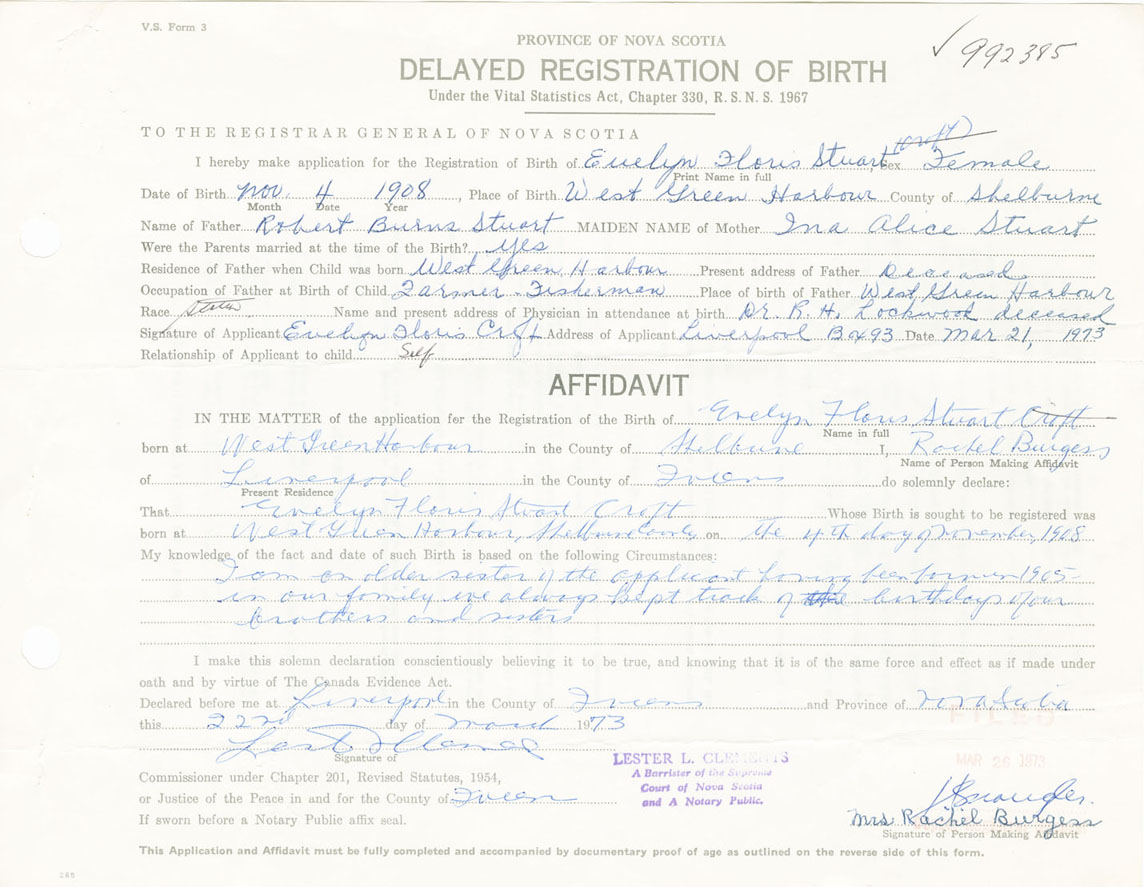 V.S. Form 3
PROVINCE OF NOVA SCOTIA
✓ 992385
DELAYED REGISTRATION OF BIRTH
Under the Vital Statistics Act, Chapter 330, R. S. N. S. 1967
TO THE REGISTRAR GENERAL OF NOVA SCOTIA
(Croft)
I hereby make application for the Registration of Birth of Evelyn Floris Stuart Sex Female
Print Name in full
Date of Birth Nov 4 1908, Place of Birth West Green Harbour County of Shelburne
Month Date Year
Name of Father Robert Burns Stuart MAIDEN NAME of Mother Ina Alice Stuart
Were the Parents married at the time of the Birth? yes
Residence of Father when Child was born West Green Harbour Present address of Father Deceased
Occupation of Father at Birth of Child Farmer - Fisherman Place of birth of Father West Green Harbour
Race Name and present address of Physician in attendance at birth Dr. R. H. Lockwood deceased
Signature of Applicant Evelyn Floris Croft Address of Applicant Liverpool Box 93 Date Mar 21, 1973
Relationship of Applicant to child Self
AFFIDAVIT
IN THE MATTER of the application for the Registration of the Birth of Evelyn Floris Stuart Croft
Name in full
born at West Green Harbour in the County of Shelburne I, Rachel Burgess
Name of Person Making Affidavit
of Liverpool in the County of Queens do solemnly declare:
Present Residence
That Evelyn Floris Stuart Croft Whose Birth is sought to be registered was
born at West Green Harbour, Shelburne County on the 4th day of November, 1908
My knowledge of the fact and date of such Birth is based on the following Circumstances:
I am an older sister of the applicant having been born in 1905-
in our family we always kept track of the birthdays of our
brothers and sisters
I make this solemn declaration conscientiously believing it to be true, and knowing that it is of the same force and effect as if made under
oath and by virtue of The Canada Evidence Act.
Declared before me at Liverpool in the County of Queens and Province of Nova Scotia
FILED
this 22nd day of March 1973
Signature of
LESTER L. CLEMENTS
A Barrister of the Supreme
Court of Nova Scotia
and A Notary Public.
MAR 26 1973
Commissioner under Chapter 201, Revised Statutes, 1954,
or Justice of the Peace in and for the County of Queens
Mrs Rachel Burgess
Signature of Person Making Affidavit
If sworn before a Notary Public affix seal.
This Application and Affidavit must be fully completed and accompanied by documentary proof of age as outlined on the reverse side of this form.
265